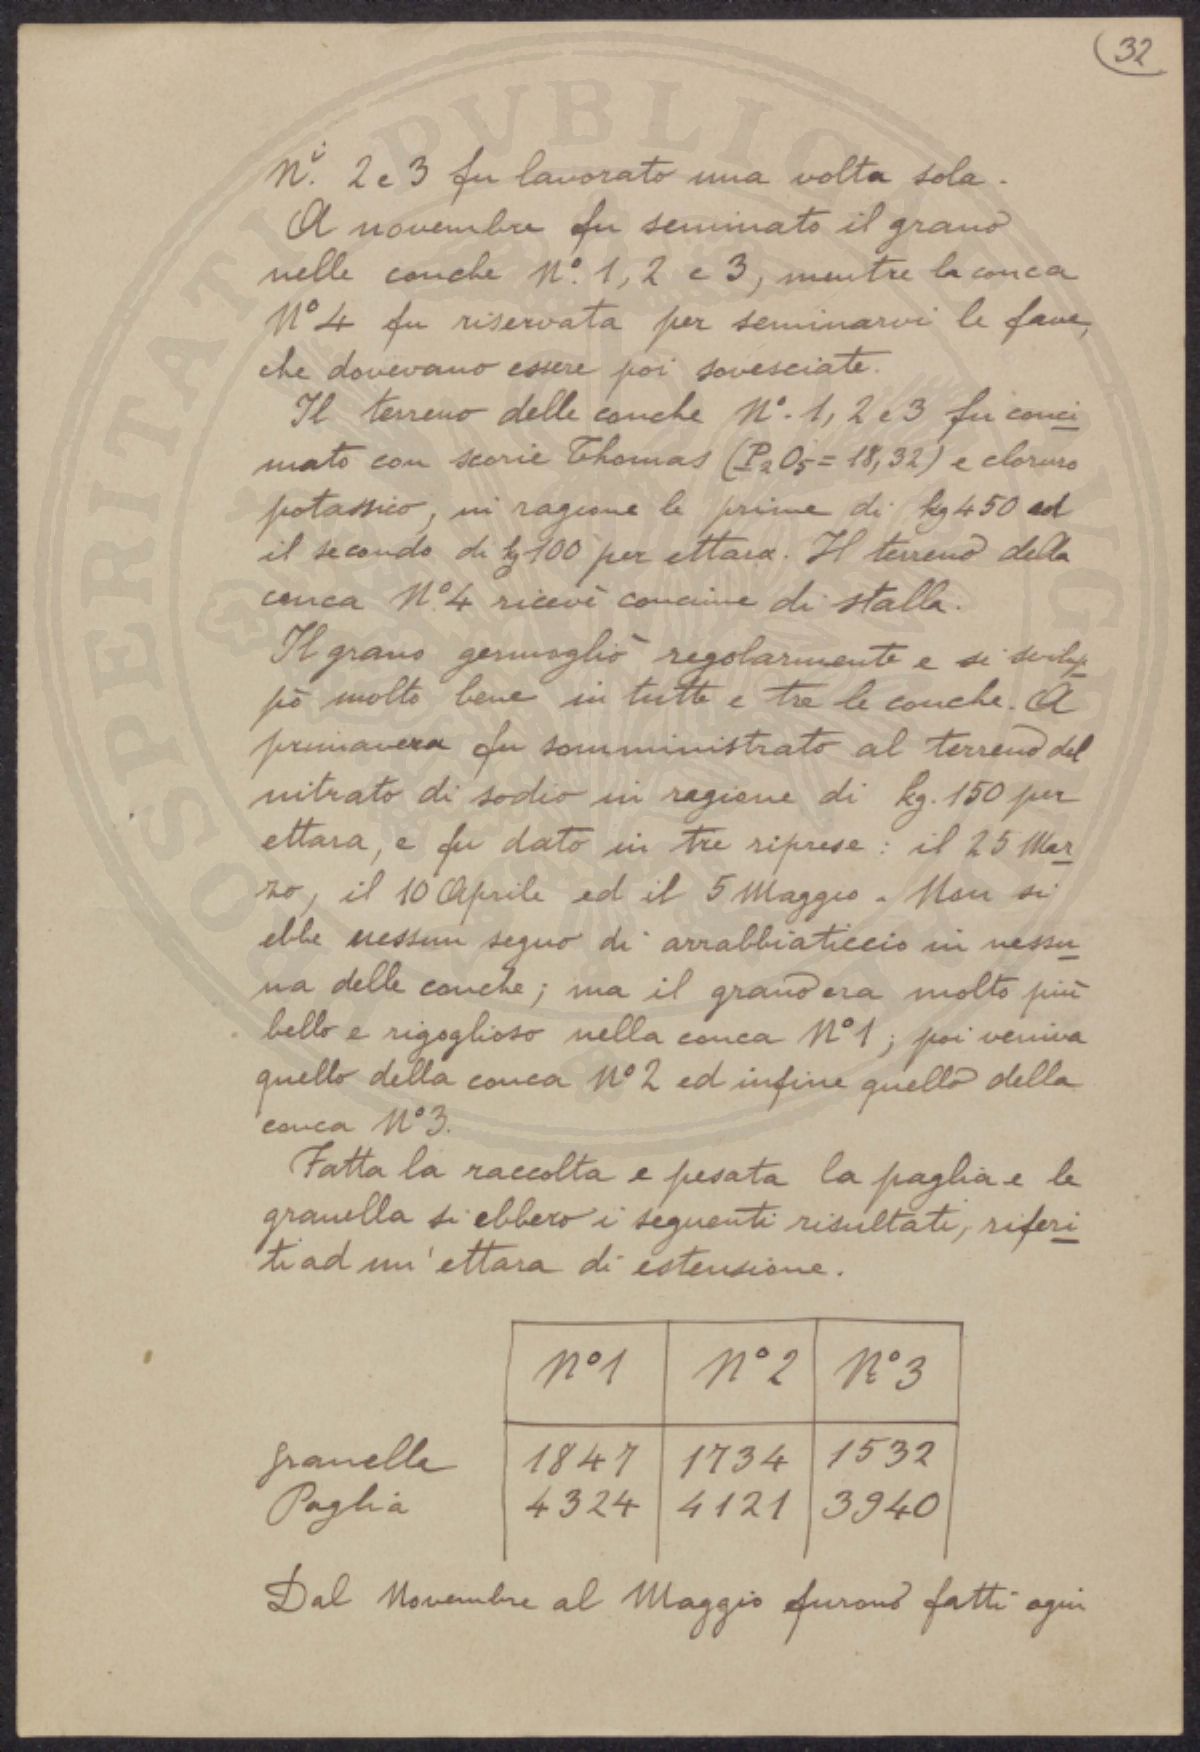 32
Nⁱ. 2 e 3 fu lavorato una volta sola.
A novembre fu seminato il grano
nelle conche N°. 1, 2 e 3, mentre la conca
N° 4 fu riservata per seminarvi le fave,
che dovevano essere poi sovesciate.
Il terreno delle conche N°. 1, 2 e 3 fu conci
mato con scorie Thomas (P2O5 = 18,32) e cloruro
potassico, in ragione le prime di kg 450 ed
il secondo di kg 100 per ettara. Il terreno della
conca N° 4 ricevè concime di stalla.
Il grano germogliò regolarmente e si svilup
pò molto bene in tutte e tre le conche. A
primavera fu somministrato al terreno del
nitrato di sodio in ragione di kg. 150 per
ettara, e fu dato in tre riprese: il 25 Mar
zo, il 10 Aprile ed il 5 Maggio. Non si
ebbe nessun segno di arrabbiaticcio in nessu
na delle conche; ma il grano era molto più
bello e rigoglioso nella conca N° 1; poi veniva
quello della conca N° 2 ed infine quello della
conca N° 3.
Fatta la raccolta e pesata la paglia e la
granella si ebbero i seguenti risultati, riferi
ti ad un' ettara di estensione.
N° 1 N° 2 N° 3
granella 1847 1734 1532
Paglia 4324 4121 3940
Dal Novembre al Maggio furono fatti ogni
PROSPERITATI PVBLICAE